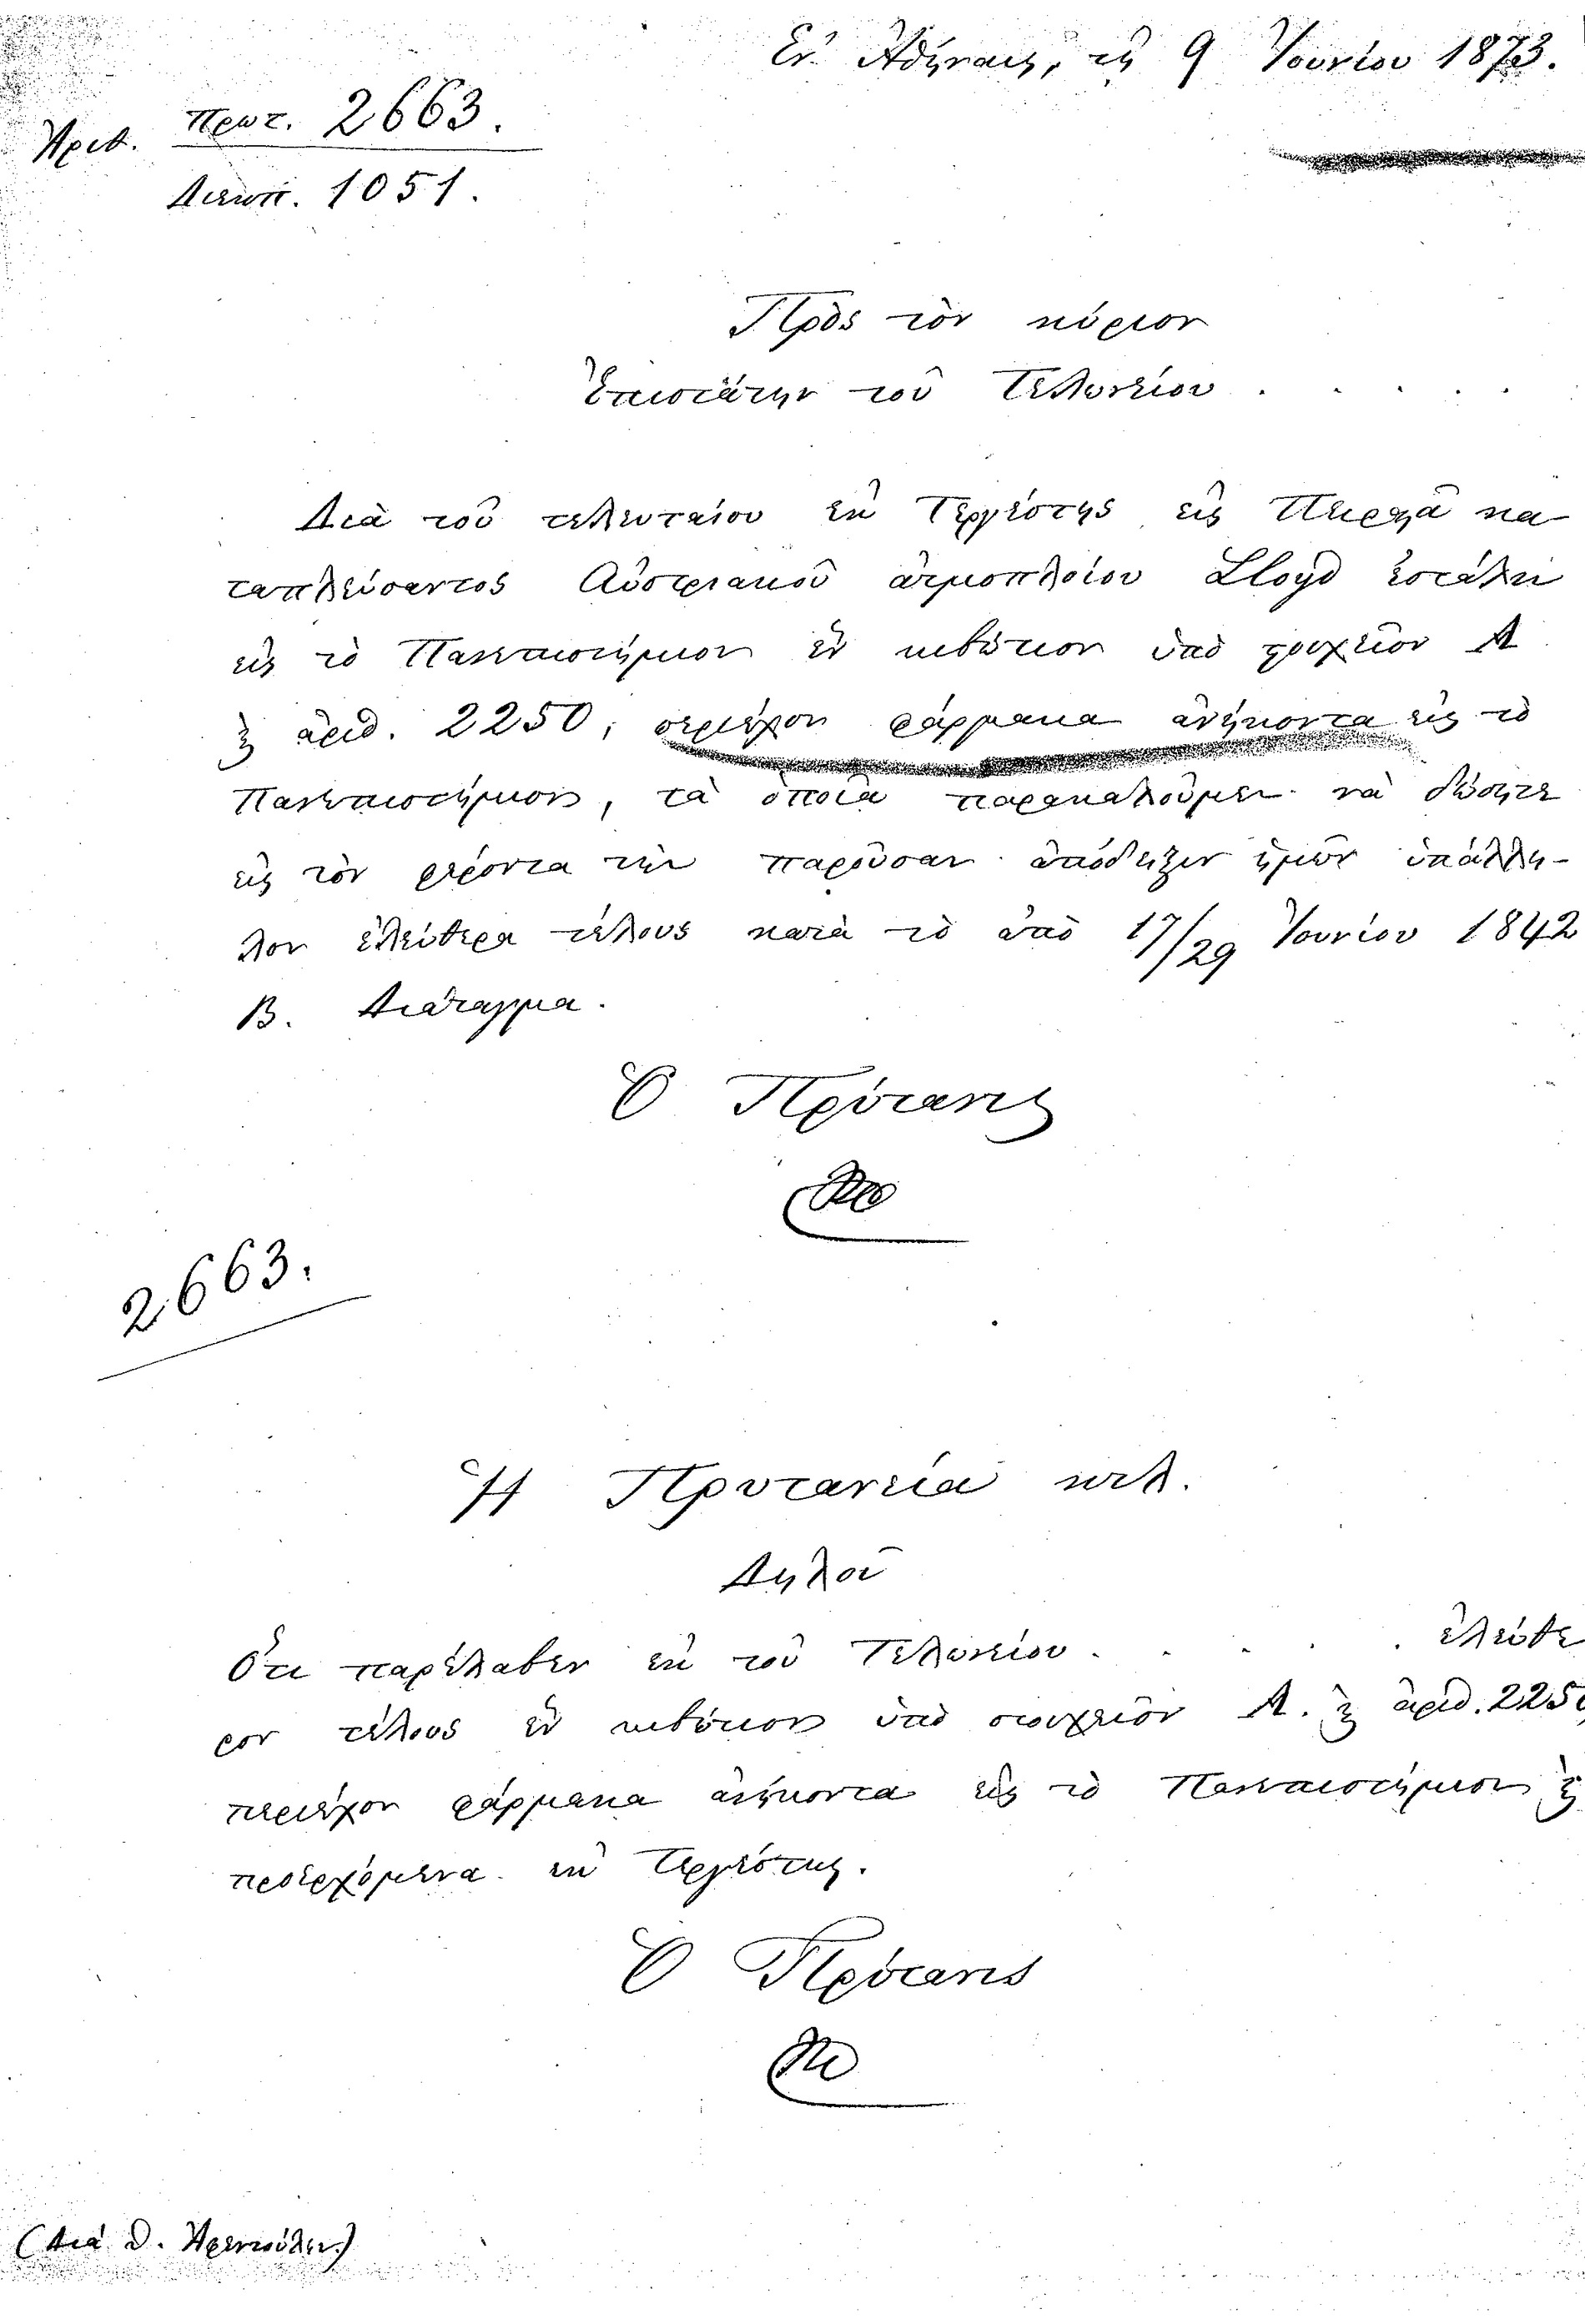 Ἐν Ἀθήναις, τῇ 9 Ἰουνίου 1873.
Ἀριθ. Πρωτ. 2663.
Διεκπ. 1051.
Πρὸς τὸν κύριον
Ἐπιστάτην τοῦ Τελωνείου . . . . .
Διὰ τοῦ τελευταίου ἐκ Τεργέστης εἰς Πειραιᾶ κα
ταπλεύσαντος Αὐστριακοῦ ἀτμοπλοίου Lloyd ἐστάλη
εἰς τὸ Πανεπιστήμιον ἓν κιβώτιον ὑπὸ στοιχεῖον Α
καὶ ἀριθ. 2250, περιέχον φάρμακα ἀνήκοντα εἰς τὸ
Πανεπιστήμιον, τὰ ὁποῖα παρακαλοῦμεν νὰ δώσητε
εἰς τὸν φέροντα τὴν παροῦσαν ἀπόδειξιν ἡμῶν ὑπάλλη-
λον ἐλεύθερα τέλους κατὰ τὸ ἀπὸ 17/29 Ἰουνίου 1842
Β. Διάταγμα.
Ὁ Πρύτανις
2663.
Ἡ Πρυτανεία κτλ.
Δηλοῖ
Ὅτι παρέλαβεν ἐκ τοῦ Τελωνείου . . . . ἐλεύθε
ρον τέλους ἓν κιβώτιον ὑπὸ στοιχεῖον Α. καὶ ἀριθ. 2250
περιέχον φάρμακα ἀνήκοντα εἰς τὸ Πανεπιστήμιον καὶ
προερχόμενα ἐκ Τεργέστης.
Ὁ Πρύτανις
(Διὰ Θ.